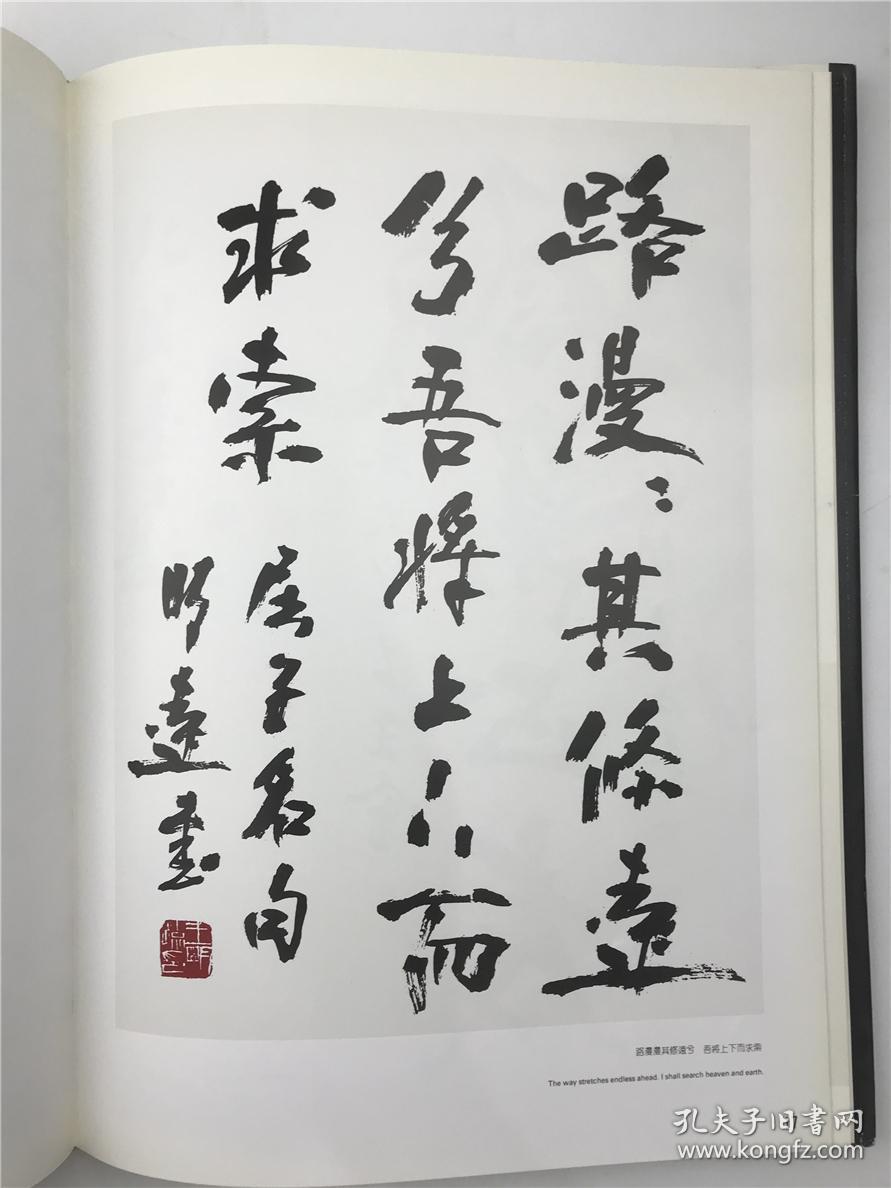 路漫〻其修遠
兮吾將上下而
求索
屈子名句
明遠書
路漫漫其修遠兮　吾將上下而求索
The way stretches endless ahead. I shall search heaven and earth.
孔夫子旧書网
www.kongfz.com